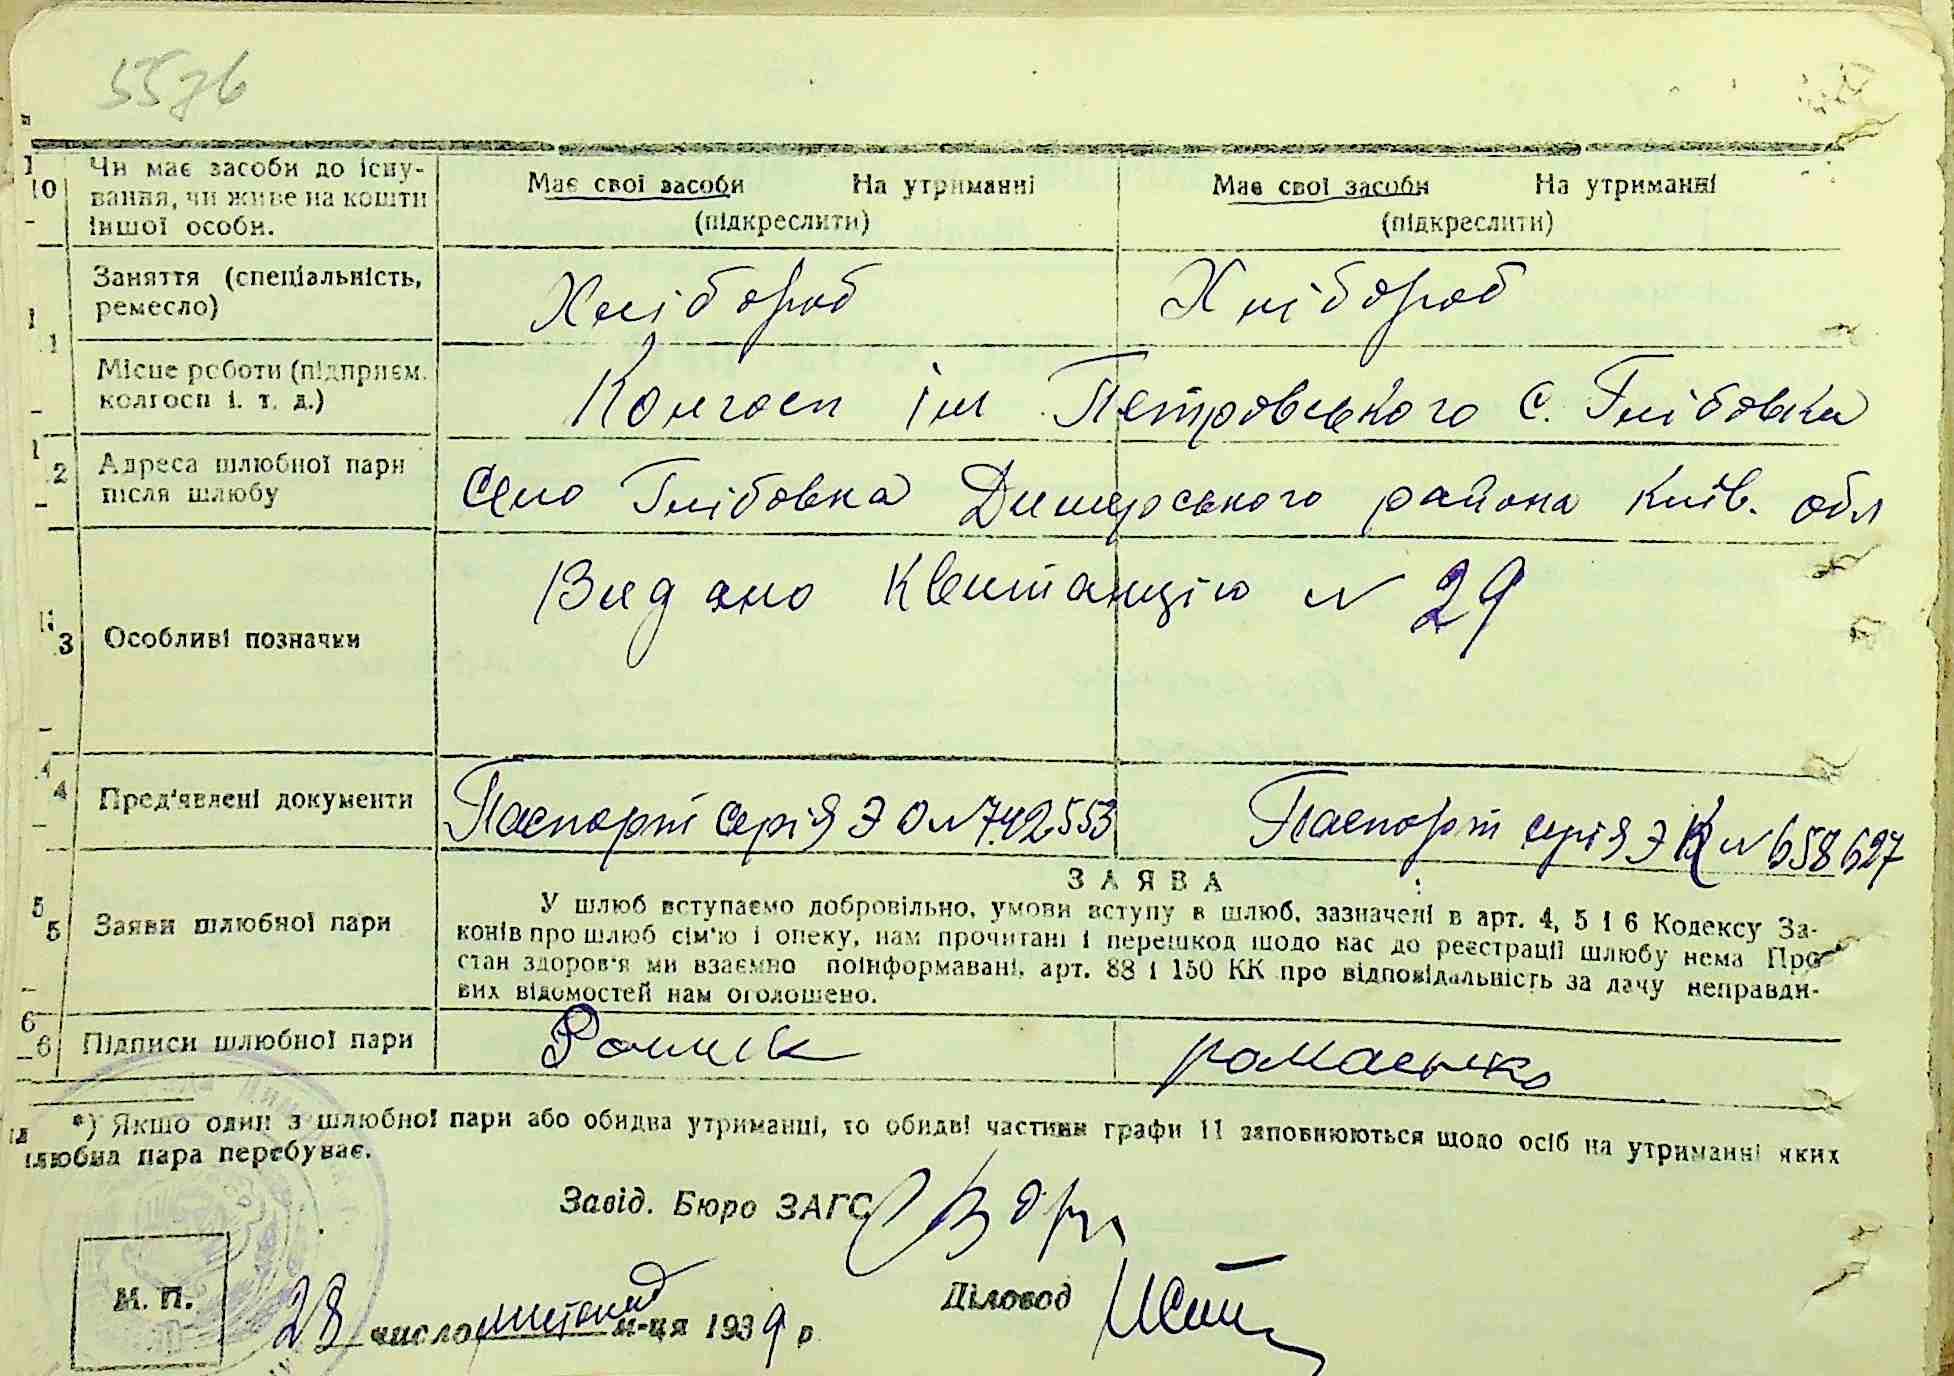 557б
10 Чи має засоби до існу-
вання, чи живе на кошти
іншої особи.
Має свої засоби На утриманні
(підкреслити)
Має свої засоби На утриманні
(підкреслити)
11 Заняття (спеціальність,
ремесло)
Хлібороб
Хлібороб
Місце роботи (підприєм.
колгосп і. т. д.)
Колгосп ім Петровського с. Глібовка
12 Адреса шлюбної пари
після шлюбу
Село Глібовка Димерського района Київ. обл
13 Особливі позначки
Видано квитанцію N 29
14 Пред'явлені документи
Паспорт серія ЭО N 742553
Паспорт серія ЭК N 658627
ЗАЯВА
15 Заяви шлюбної пари
У шлюб вступаємо добровільно, умови вступу в шлюб, зазначені в арт. 4, 5 і 6 Кодексу За-
конів про шлюб сім'ю і опеку, нам прочитані і перешкод щодо нас до реєстрації шлюбу нема Про
стан здоров'я ми взаємно поінформавані, арт. 88 і 150 КК про відповідальність за дачу неправди-
вих відомостей нам оголошено.
16 Підписи шлюбної пари
Ромасько
*) Якщо один з шлюбної пари або обидва утриманці, то обидві частини графи 11 заповнюються щодо осіб на утриманні яких
шлюбна пара перебуває.
Завід. Бюро ЗАГС
М. П.
28 число листопад м-ця 1939 р
Діловод